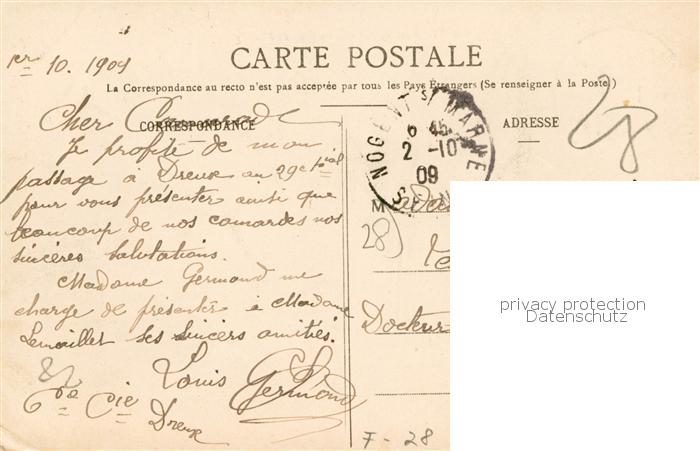 1er 10. 1909
CARTE POSTALE
La Correspondance au recto n'est pas acceptée par tous les Pays Étrangers (Se renseigner à la Poste)
CORRESPONDANCE
ADRESSE
Cher Camarade
Je profite de mon
passage à Dreux au 29e
pour vous présenter ainsi que
beaucoup de nos camarades nos
sincères salutations.
Madame Germond me
charge de présenter à Madame
Lemaillet ses sincers amitiés.
Louis Germond
6e Cie
Dreux
NOGENT S/ MARNE
6 45
2 -10
09
S
M
28
Docteur
28
82
F - 28
privacy protection
Datenschutz